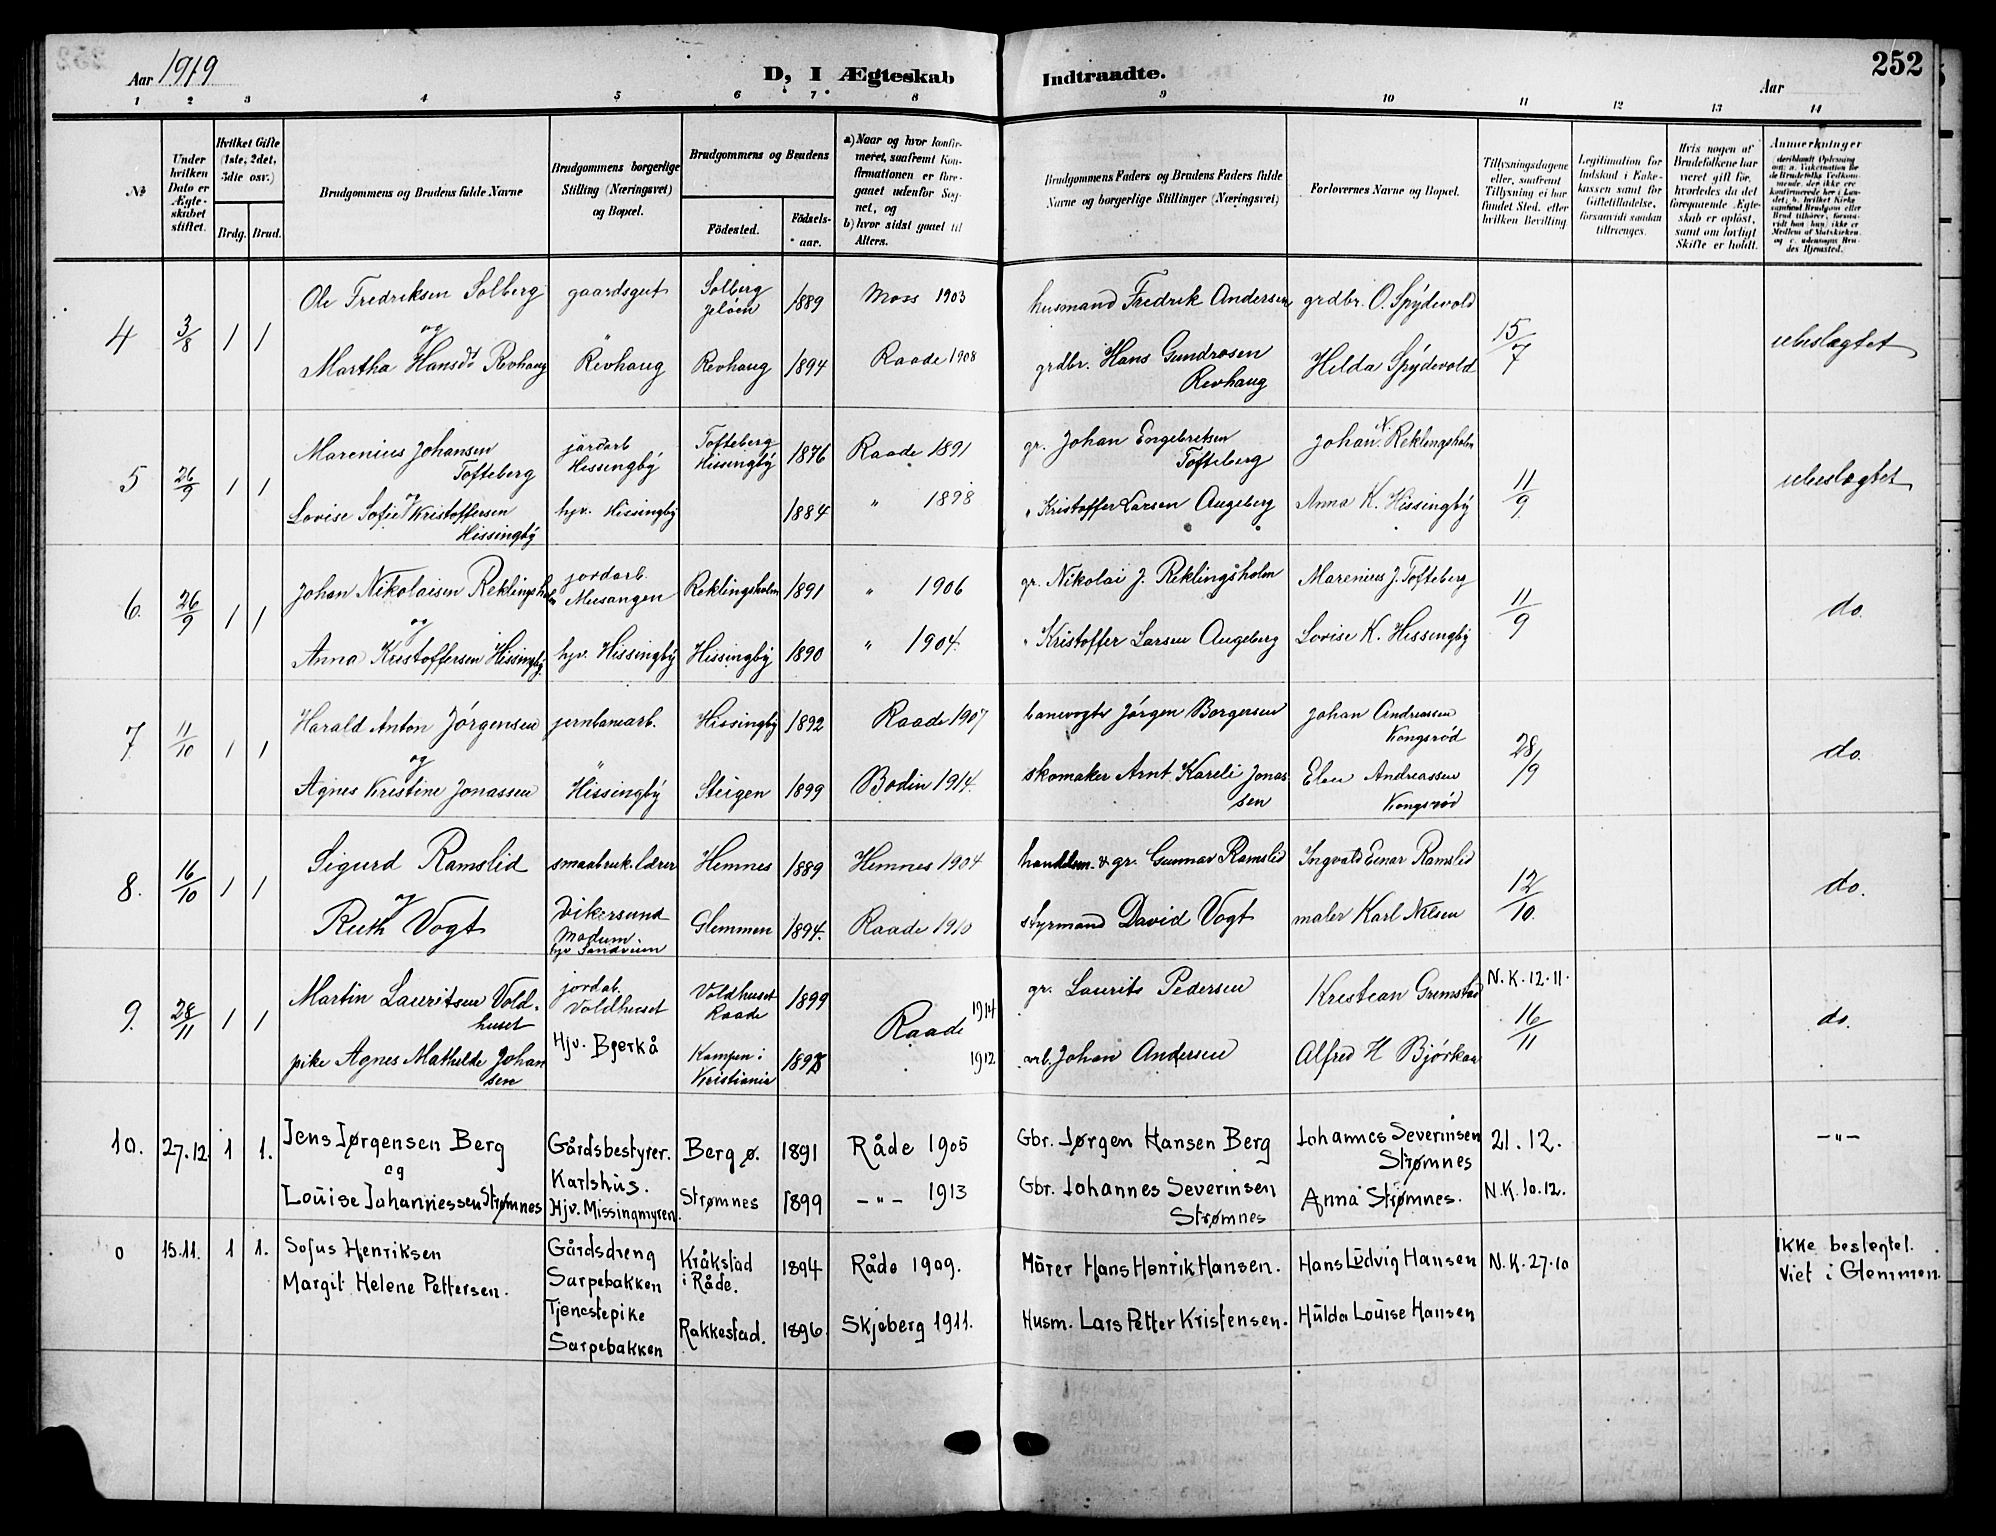 Aar 1919
D, I Ægteskab Indtraadte.
252
Aar
1 2 3 4 5 6 7 8 9 10 11 12 13 14
No
Under hvilken Dato er Ægteskabet stiftet.
Hvilket Gifte (1ste, 2det, 3die osv.)
Brdg. Brud.
Brudgommens og Brudens fulde Navne
Brudgommens borgerlige Stilling (Næringsvei) og Bopæl.
Brudgommens og Brudens
Födested. Födselsaar.
a) Naar og hvor konfirmeret, saafremt Konfirmationen er foregaaet udenfor Sognet, og
b) hvor sidst gaaet til Alters.
Brudgommens Faders og Brudens Faders fulde Navne og borgerlige Stillinger (Næringsvei)
Forlovernes Navne og Bopæl.
Tillysningsdagene eller, saafremt Tillysning ei har fundet Sted, efter hvilken Bevilling
Legitimation for Indskud i Enkekassen samt for Giftetilladelse, forsaavidt saadan tiltrænges.
Hvis nogen af Brudefolkene har været gift før, hvorledes da det foregaaende Ægteskab er oplöst, samt om lovligt Skifte er holdt.
Anmærkninger
4 3/8 1 1 Ole Fredriksen Solberg gaardsgut Solberg Jeløen 1889 Moss 1903 husmand Fredrik Andersen grdbr. O. Spydevold 15/7 ubeslægtet
og
Martha Hansdt Revhaug Revhaug Revhaug 1894 Raade 1908 grdbr. Hans Gundrosen Revhaug Hilda Spydevold
5 26/9 1 1 Marenius Johansen Tofteberg jordarb Hissingby Tofteberg Hissingby 1876 Raade 1891 gr. Johan Engebretsen Tofteberg Johan N. Reklingsholm 11/9 ubeslægtet
og
Lovise Sofie Kristoffersen Hissingby hjv. Hissingby 1884 " 1898 " Kristoffer Larsen Augeberg Anna K. Hissingby
6. 26/9 1 1 Johan Nikolaisen Reklingsholm jordarb. Musangen Reklingsholm 1891 " 1906 gr. Nikolai J. Reklingsholm Marenius J. Tofteberg 11/9 do.
og
Anna Kristoffersen Hissingby. hjv. Hissingby Hissingby 1890 " 1904. " Kristoffer Larsen Augeberg Lovise K. Hissingby
7. 11/10 1 1 Harald Anton Jørgensen jernbanearb. Hissingby 1892 Raade 1907 banevogter Jørgen Borgersen Johan Andreassen Kongsrød 28/9 do.
og
Agnes Kristine Jonassen Hissingby Steigen 1899 Bodin 1914. skomaker Arnt Kareli Jonassen Elen Andreassen Kongsrød
8. 16/10 1 1 Sigurd Ramslid smaabruk.lærer Hemnes 1889 Hemnes 1904 handelsm. & gr. Gunnar Ramslid Ingvald Einar Ramslid 12/10. do.
og
Ruth Vogt Vikersund Modum hjv Sandveien Glemmen 1894. Raade 1910 styrmand David Vogt maler Karl Nilsen
9. 28/11 1 1 Martin Lauritsen Voldhuset jordab. Voldhuset Voldhuset Raade 1899 Raade 1914 gr. Laurits Pedersen Kristian Grimstad N.K. 12.11. 16/11 do.
pike Agnes Mathilde Johansen Hjv. Bjerkå Kampen i Kristiania 1898 1912 arb. Johan Andersen Alfred H Bjørkaa
10. 27.12 1 1. Jens Jørgensen Berg Gårdsbestyrer. Karlshus. Berg ø. 1891 Råde 1905 Gbr. Jørgen Hansen Berg Johannes Severinsen Strømnes 21.12. —"—
og
Louise Johannessen Strømnes Hjv. Missingmyren. Strømnes 1899 —"— 1913 Gbr. Johannes Severinsen Strømnes Anna Strømnes. N.K. 10.12.
0 15.11. 1 1. Sofus Henriksen Gårdsdreng Sarpebakken Kråkstad i Råde. 1894 Råde 1909. Mürer Hans Henrik Hansen. Hans Ludvig Hansen N.K. 27.10 Ikke beslegtet. Viet i Glemmen.
Margit Helene Pettersen. Tjenestepike Sarpebakken Rakkestad. 1896. Skjeberg 1911. Husm. Lars Petter Kristensen. Hulda Louise Hansen